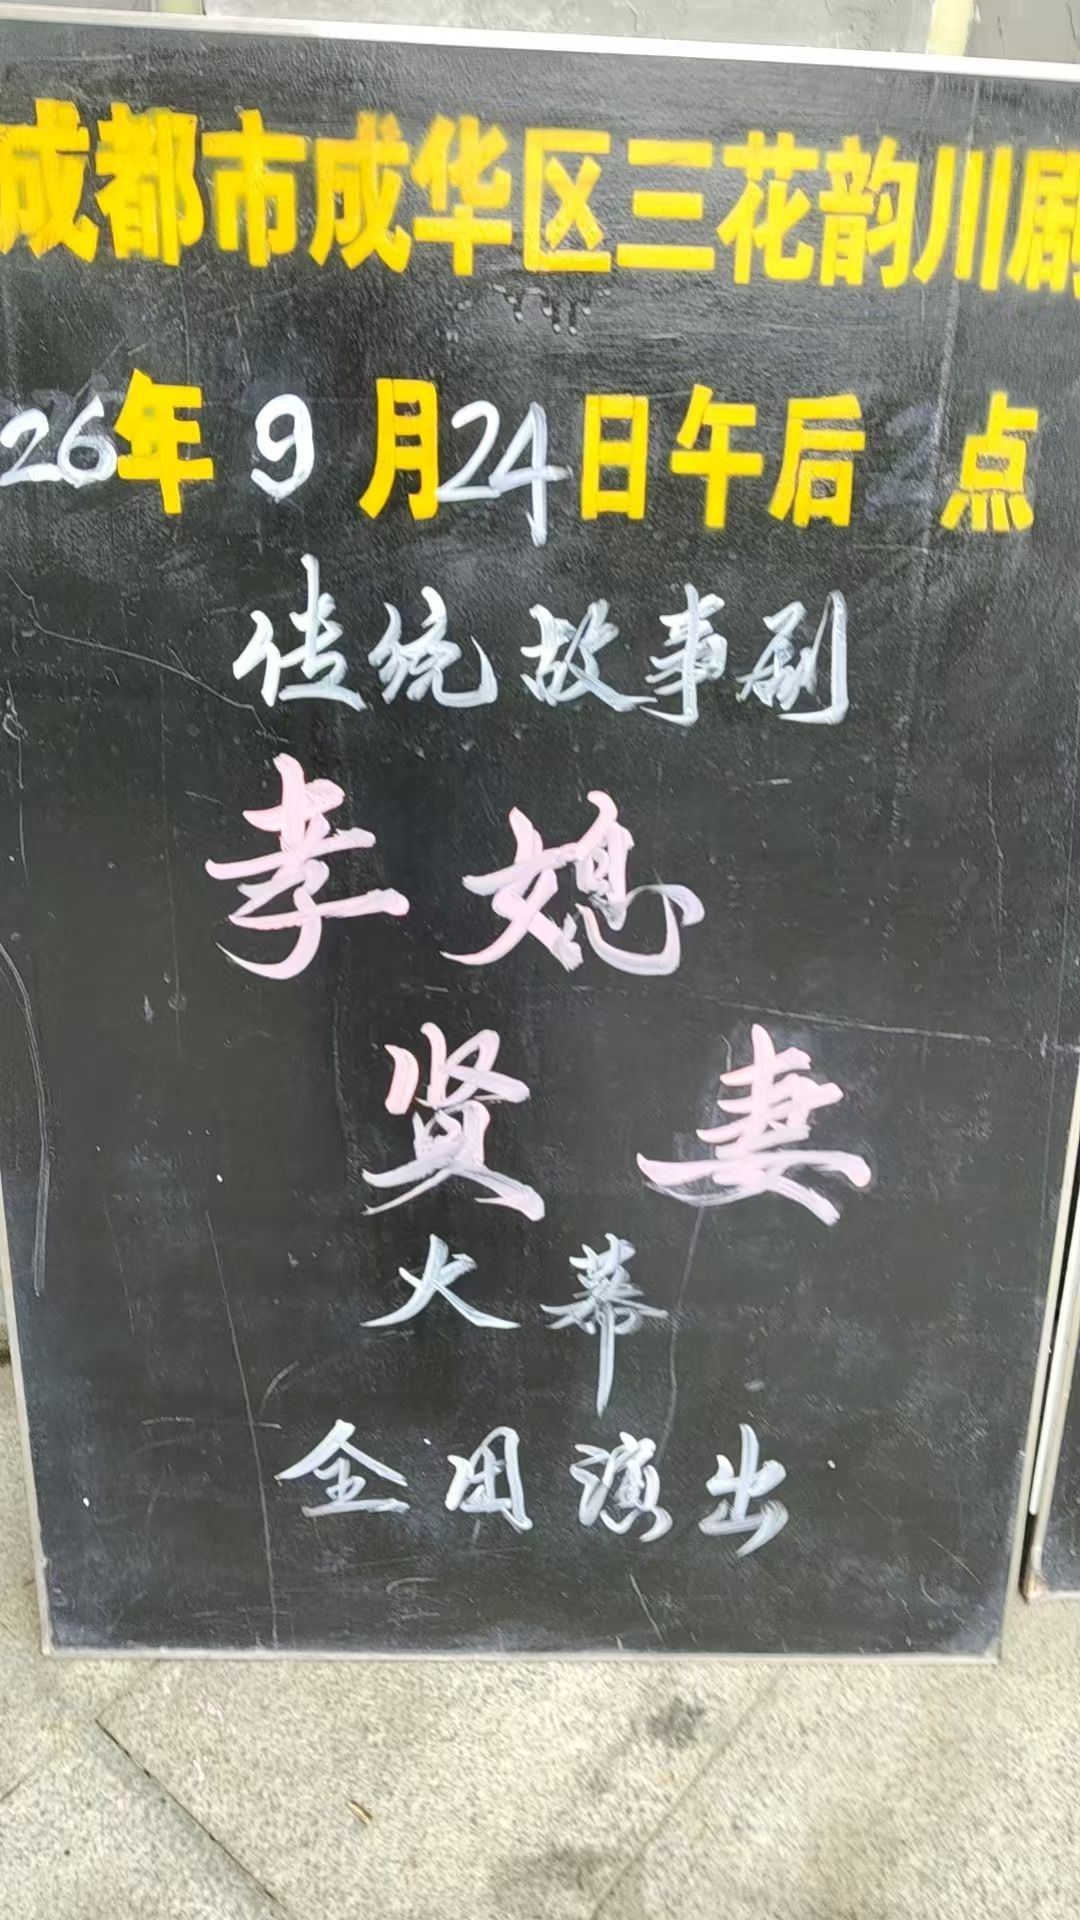 成都市成华区三花韵川剧
26年9月24日午后2点
传统故事剧
孝媳
贤妻
大幕
全团演出